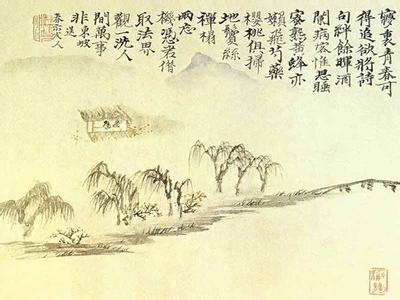 夢裏青春可
得追欲將詩
句絆餘暉酒
闌病客惟思睡
蜜熟黃蜂亦
嬾飛芍藥
櫻桃俱掃
地鬢絲
禪榻
兩忘
機憑君借
取法界
觀一洗人
間萬事
非東坡送
春